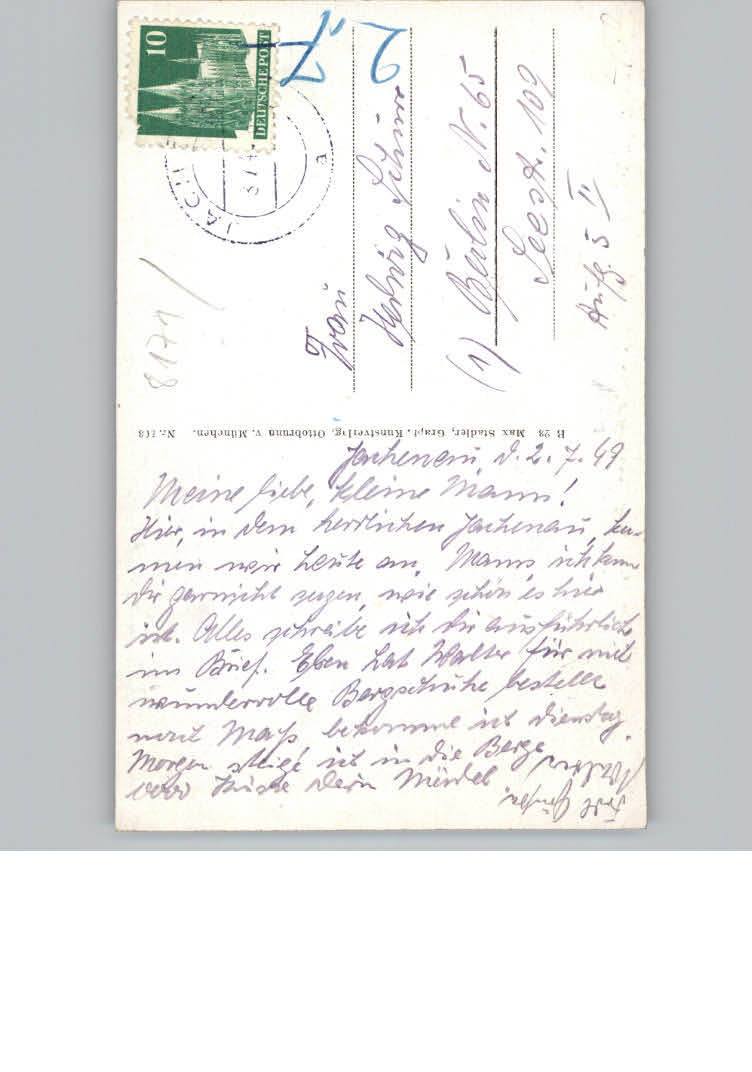 Jachenau, d. 2.7.49
Meine liebe, kleine Mann!
Hier, in dem herrlichen Jachenau, ka-
men wir heute an. Mann, ich kann
Dir garnicht sagen, wie schön es hier
ist. Alles schreibe ich Dir ausführlich
im Brief. Eben hat Walter für mich
wundervolle Bergschuhe bestellt
nach Maß, bekomme ich Dienstag.
Morgen steige ich in die Berge
1000 Küsse Dein Mädel
10
DEUTSCHE POST
JACH
3.7.4
a
2.7
Frau
Hedwig
(1) Berlin N. 65
Seestr. 109
Aufg. 5 II
8171
B 23 Max Stadler, Graph. Kunstverlag, Ottobrunn v. München. Nr.